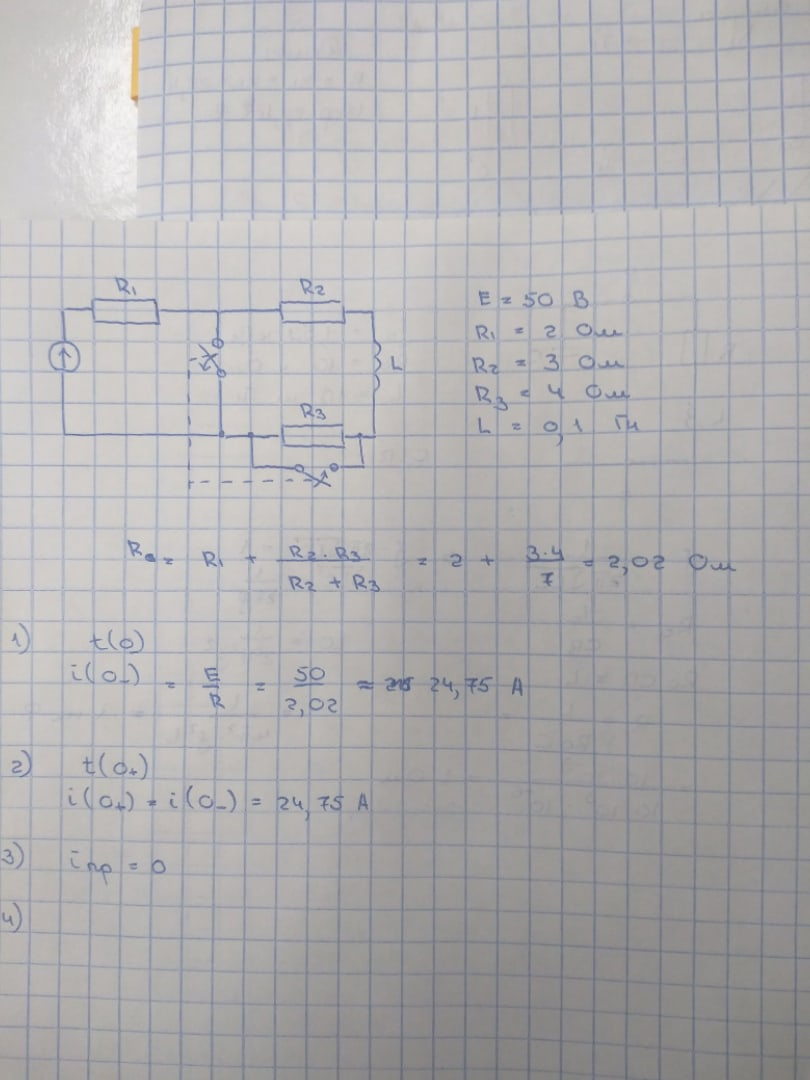 R₁
R₂
L
R₃
E = 50 В
R₁ = 2 Ом
R₂ = 3 Ом
R₃ = 4 Ом
L = 0,1 Гн
R₀ = R₁ + (R₂ · R₃)/(R₂ + R₃) = 2 + (3·4)/7 = 2,02 Ом
1) t(0)
i(0₋) = E/R = 50/2,02 = 24,75 А
2) t(0₊)
i(0₊) = i(0₋) = 24,75 А
3) iпр = 0
4)